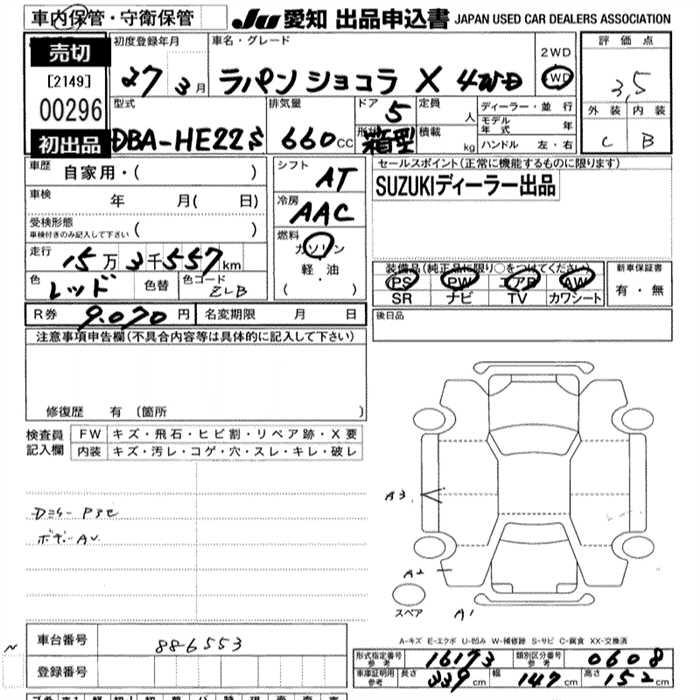 車内保管・守衛保管
JU 愛知 出品申込書 JAPAN USED CAR DEALERS ASSOCIATION
売切
[2149]
00296
初出品
初度登録年月 車名・グレード 2WD 評価点
27 3月 ラパン ショコラ X 4WD 4WD 3,5
型式 排気量 ドア 5 定員 人 ディーラー・並 行 外装 内装
モデル年式 年
DBA-HE22S 660cc 形状 箱型 積載 kg ハンドル 左・右 C B
車歴 自家用・( )
シフト AT
セールスポイント(正常に機能するものに限ります)
SUZUKIディーラー出品
車検 年 月( 日)
冷房 AAC
受検形態
車検付きのみ記入して下さい ( )
燃料 ガソリン
軽・油
( )
走行 15万3千557km
色 レッド 色替 色コード ZLB
装備品(純正品に限り○をつけてください) 新車保証書
PS PW エアB AW 有・無
SR ナビ TV カワシート
R券 9.070円 名変期限 月 日
後日品
注意事項申告欄(不具合内容等は具体的に記入して下さい)
修復歴 有 (箇所 )
検査員記入欄
FW キズ・飛石・ヒビ割・リペア跡・X要
内装 キズ・汚レ・コゲ・穴・スレ・キレ・破レ
A3
A2
スペア A1
A-キズ E-エクボ U-凹み W-補修跡 S-サビ C-腐食 XX-交換済
車台番号 886553
登録番号
形式指定番号 参考 16173 類別区分番号 参考 0608
車庫証明用 参考 長さ 339cm 幅 147cm 高さ 152cm